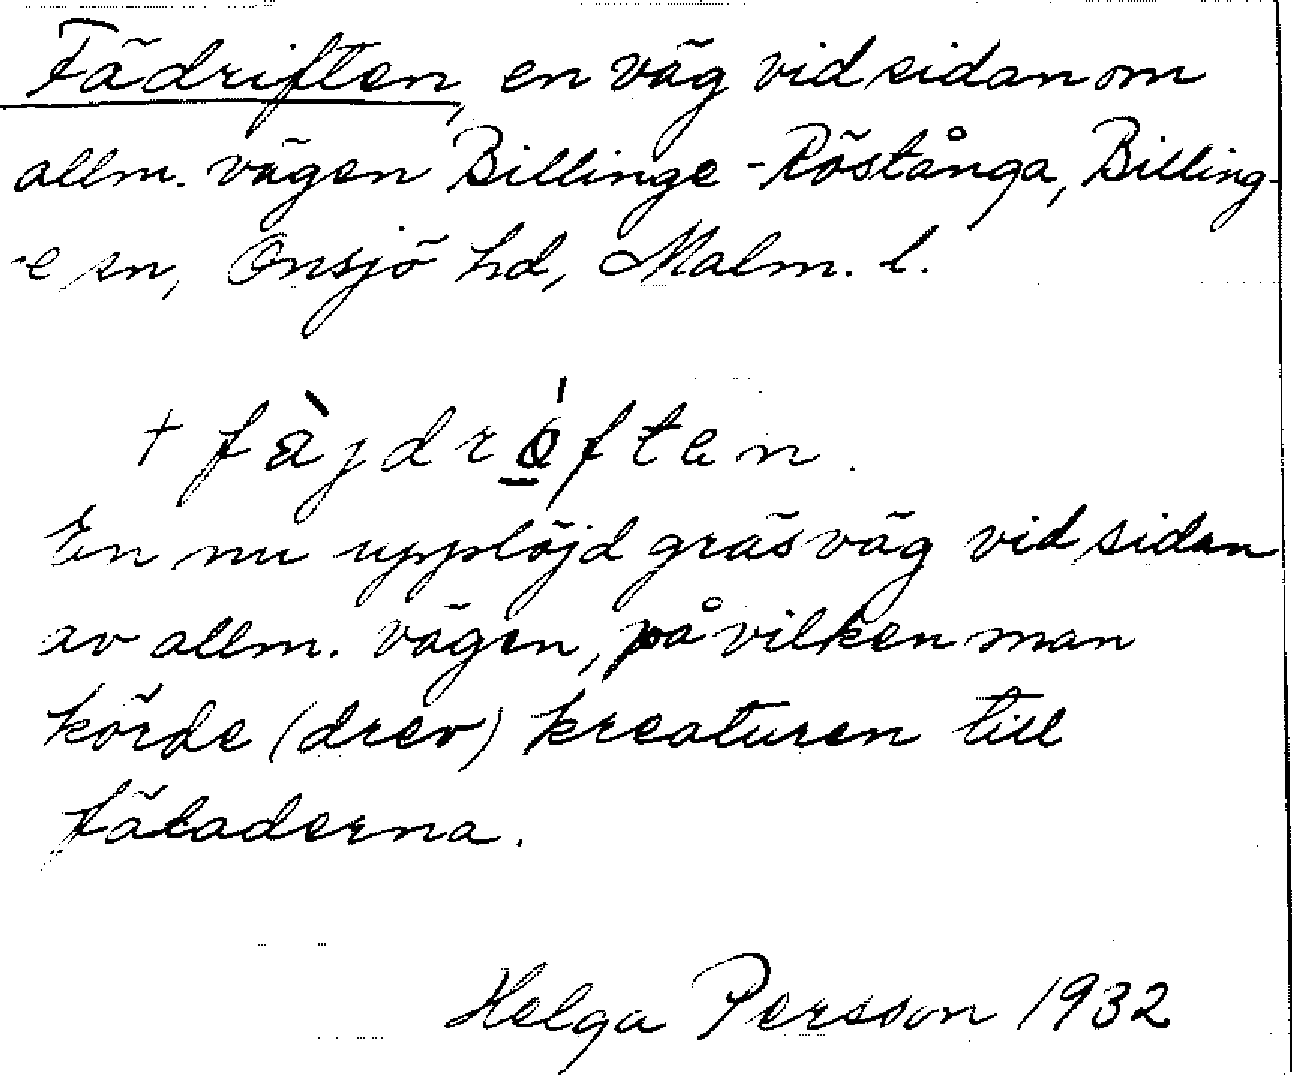 Fädriften, en väg vid sidan om
allm. vägen Billinge-Röstånga, Billing-
-e sn, Onsjö hd, Malm. l.
+ fàjdrǫ́ften.
En nu upplöjd gräsväg vid sidan
av allm. vägen, på vilken man
körde (drev) kreaturen till
fäladerna.
Helga Persson 1932